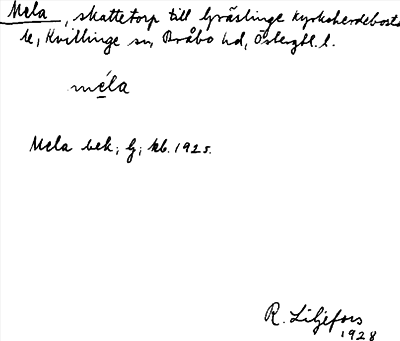 Mela, skattetorp till Grästinge kyrkoherdebostä
le, Kvillinge sn, Bråbo hd, Östergtl. l.
méla
Mela bek; G; kb. 1925.
R. Liljefors
1928